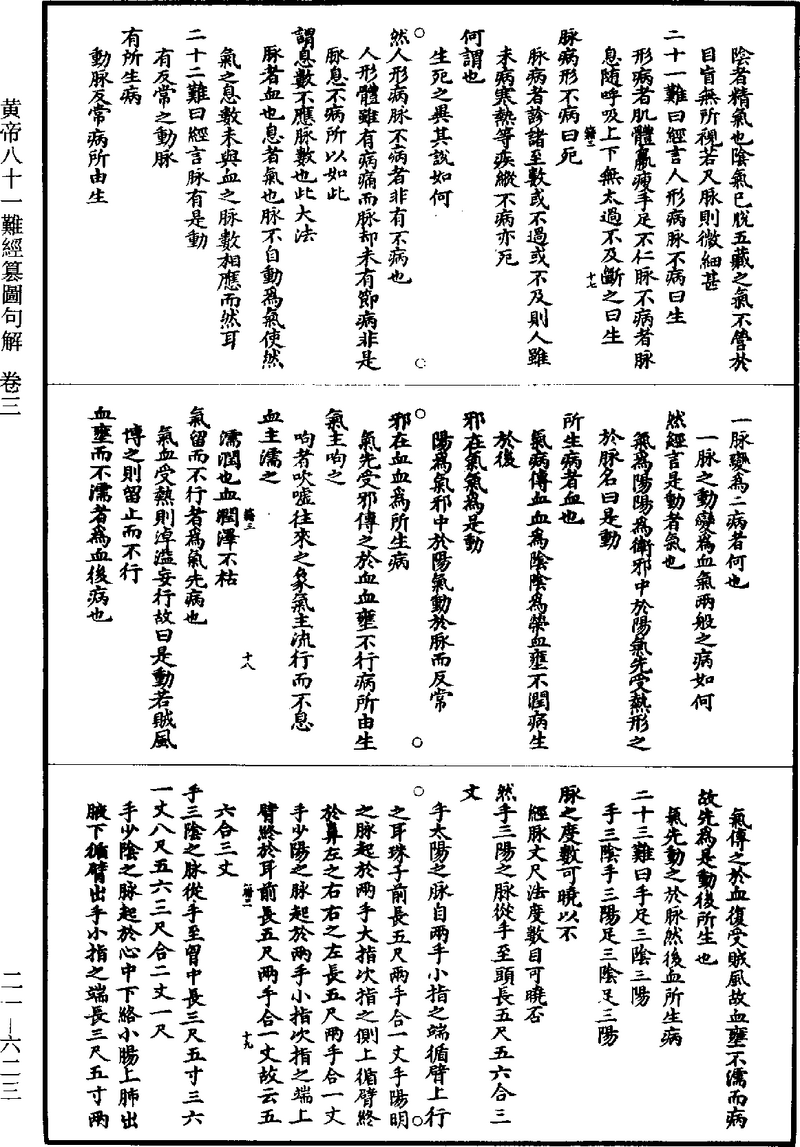 陰者精氣也陰氣已脫五藏之氣不營於
目盲無所視若尺脉則微細甚
二十一難曰經言人形病脉不病曰生
形病者肌體羸瘦手足不仁脉不病者脉
息随呼吸上下無太過不及斷之曰生
難三
十七
脉病形不病曰死
脉病者診諸至數或不過或不及則人雖
未病寒熱等疾縱不病亦死
何謂也
生死之異其說如何
然人形病脉不病者非有不病也
人形體雖有病痛而脉却未有節病非是
脉息不病所以如此
謂息數不應脉數也此大法
脉者血也息者氣也脉不自動為氣使然
氣之息數未與血之脉數相應而然耳
二十二難曰經言脉有是動
有反常之動脉
有所生病
動脉反常病所由生
一脉變為二病者何也
一脉之動變為血氣兩般之病如何
然經言是動者氣也
氣為陽陽為衛邪中於陽氣先受熱形之
於脉名曰是動
所生病者血也
氣病傳血血為陰陰為榮血壅不潤病生
於後
邪在氣氣為是動
陽為氣邪中於陽氣動於脉而反常
邪在血血為所生病
氣先受邪傳之於血血壅不行病所由生
氣主呴之
呴者吹噓往來之象氣主流行而不息
血主濡之
難三
十八
濡潤也血潤澤不枯
氣留而不行者為氣先病也
氣血受熱則淖溢妄行故曰是動若賊風
傳之則留止而不行
血壅而不濡者為血後病也
氣傳之於血復受賊風故血壅不濡而病
故先為是動後所生也
氣先動之於脉然後血所生病
二十三難曰手足三陰三陽
手三陰手三陽足三陰足三陽
脉之度數可曉以不
經脉丈尺法度數目可曉否
然手三陽之脉從手至頭長五尺五六合三
丈
手太陽之脉自兩手小指之端循臂上行
之耳珠子前長五尺兩手合一丈手陽明
之脉起於兩手大指次指之側上循臂終
於鼻左之右右之左長五尺兩手合一丈
手少陽之脉起於兩手小指次指之端上
臂終於耳前長五尺兩手合一丈故云五
難三
十九
六合三丈
手三陰之脉從手至胷中長三尺五寸三六
一丈八尺五六三尺合二丈一尺
手少陰之脉起於心中下絡小腸上肺出
腋下循臂出手小指之端長三尺五寸兩
黄帝八十一難經篡圖句解 卷三
二一—六二三